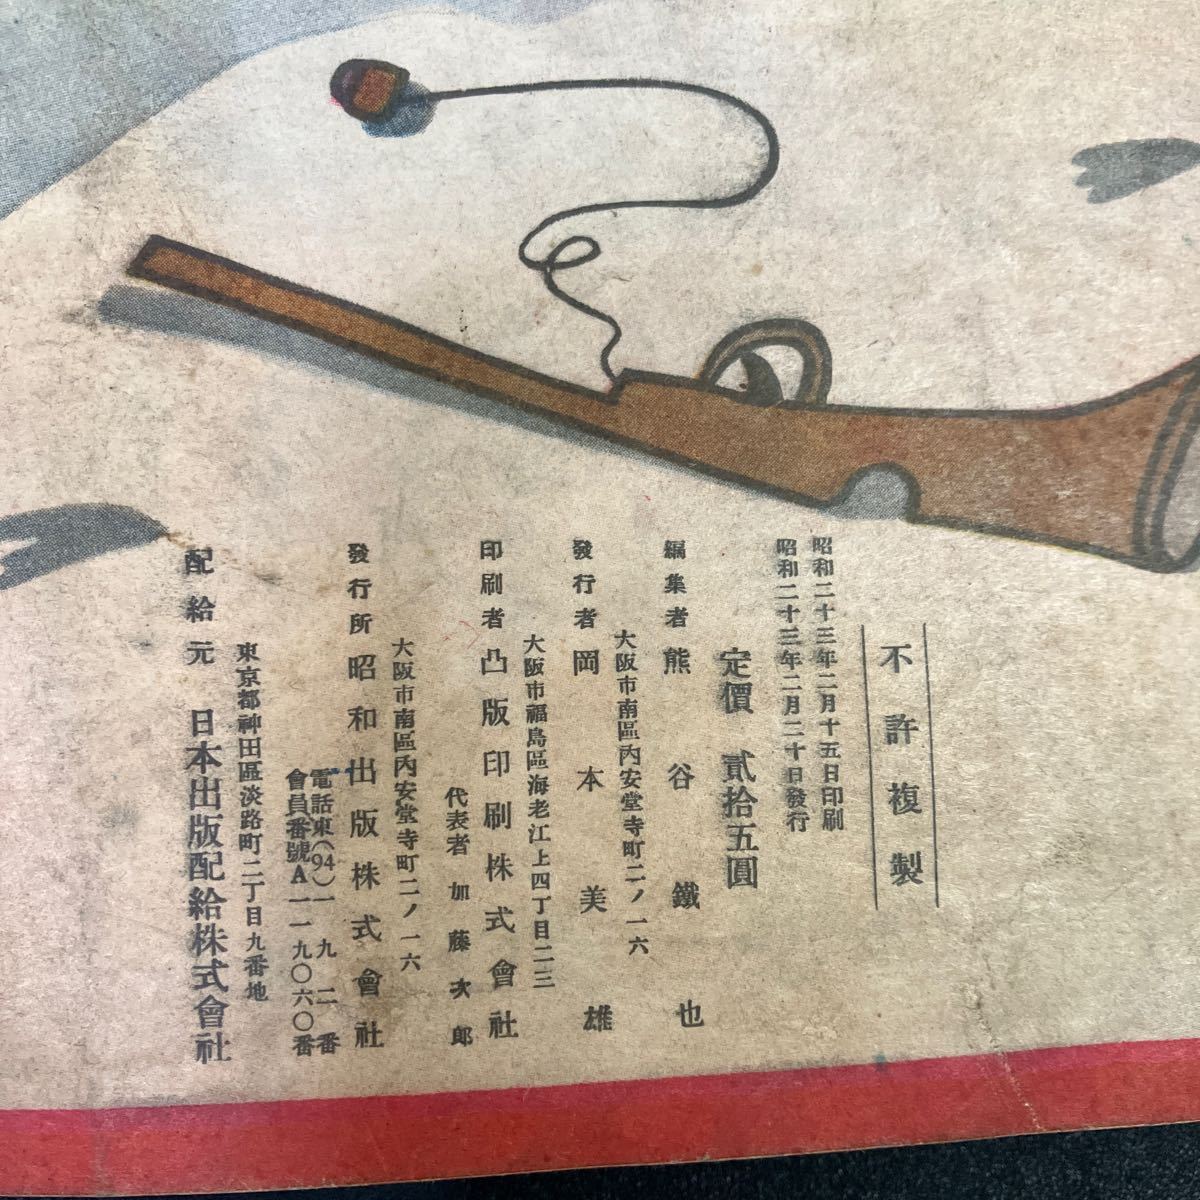 不許複製
昭和二十三年二月十五日印刷
昭和二十三年二月二十日發行
定價 貳拾五圓
編集者 熊谷鐵也
大阪市南區内安堂寺町二ノ一六
發行者 岡本美雄
大阪市福島區海老江上四丁目二三
印刷者 凸版印刷株式會社
代表者 加藤次郎
大阪市南區内安堂寺町二ノ一六
發行所 昭和出版株式會社
電話東(94)一九二番
會員番號A一一九〇六〇番
東京都神田區淡路町二丁目九番地
配給元 日本出版配給株式會社